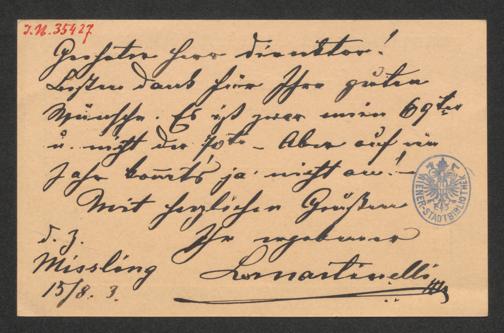 J.N. 35427
Geehrter Herr Direktor!
Besten Dank für Ihre guten
Wünsche. Es ist zwar mein 69ter
u. nicht der 70te – Aber auf ein
Jahr kommt's ja nicht an! –
Mit herzlichen Grüßen
Ihr ergebener
d. z.
Missling
15/8. 3.
WIENER-STADTBIBLIOTHEK